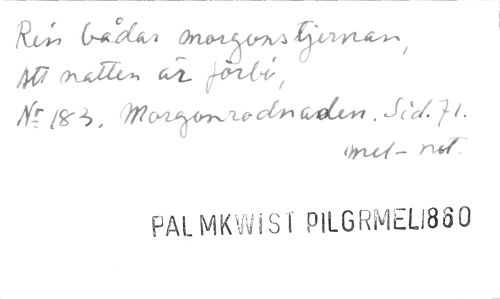 Ren bådar morgonstjernan,
Att natten är förbi,
Nr 183. Morgonrodnaden. Sid. 71.
mel-not.
PALMKWIST PILGRMEL1860